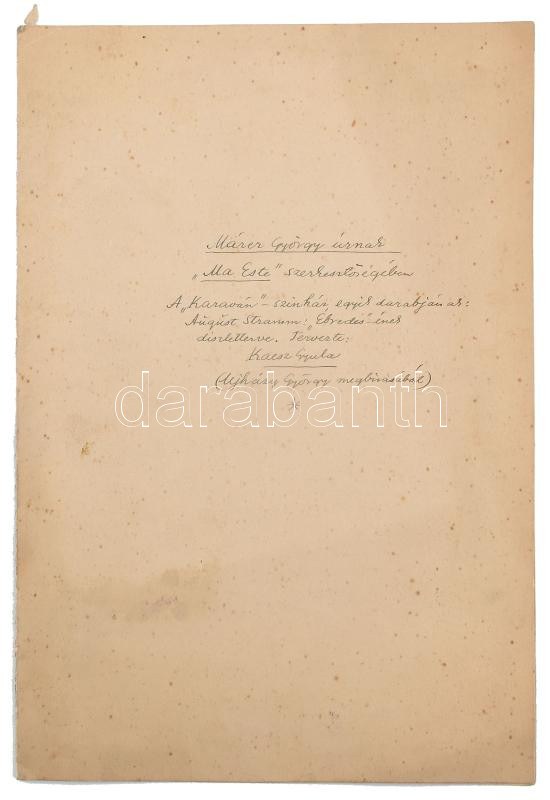 Márer György úrnak
„Ma Este” szerkesztőségében
A „Karaván”-szinház egyik darabjának:
August Stramm: „Ébredés”-ének
diszletterve. Tervezte:
Kaesz Gyula
(Ujházy György megbizásából)
darabanth